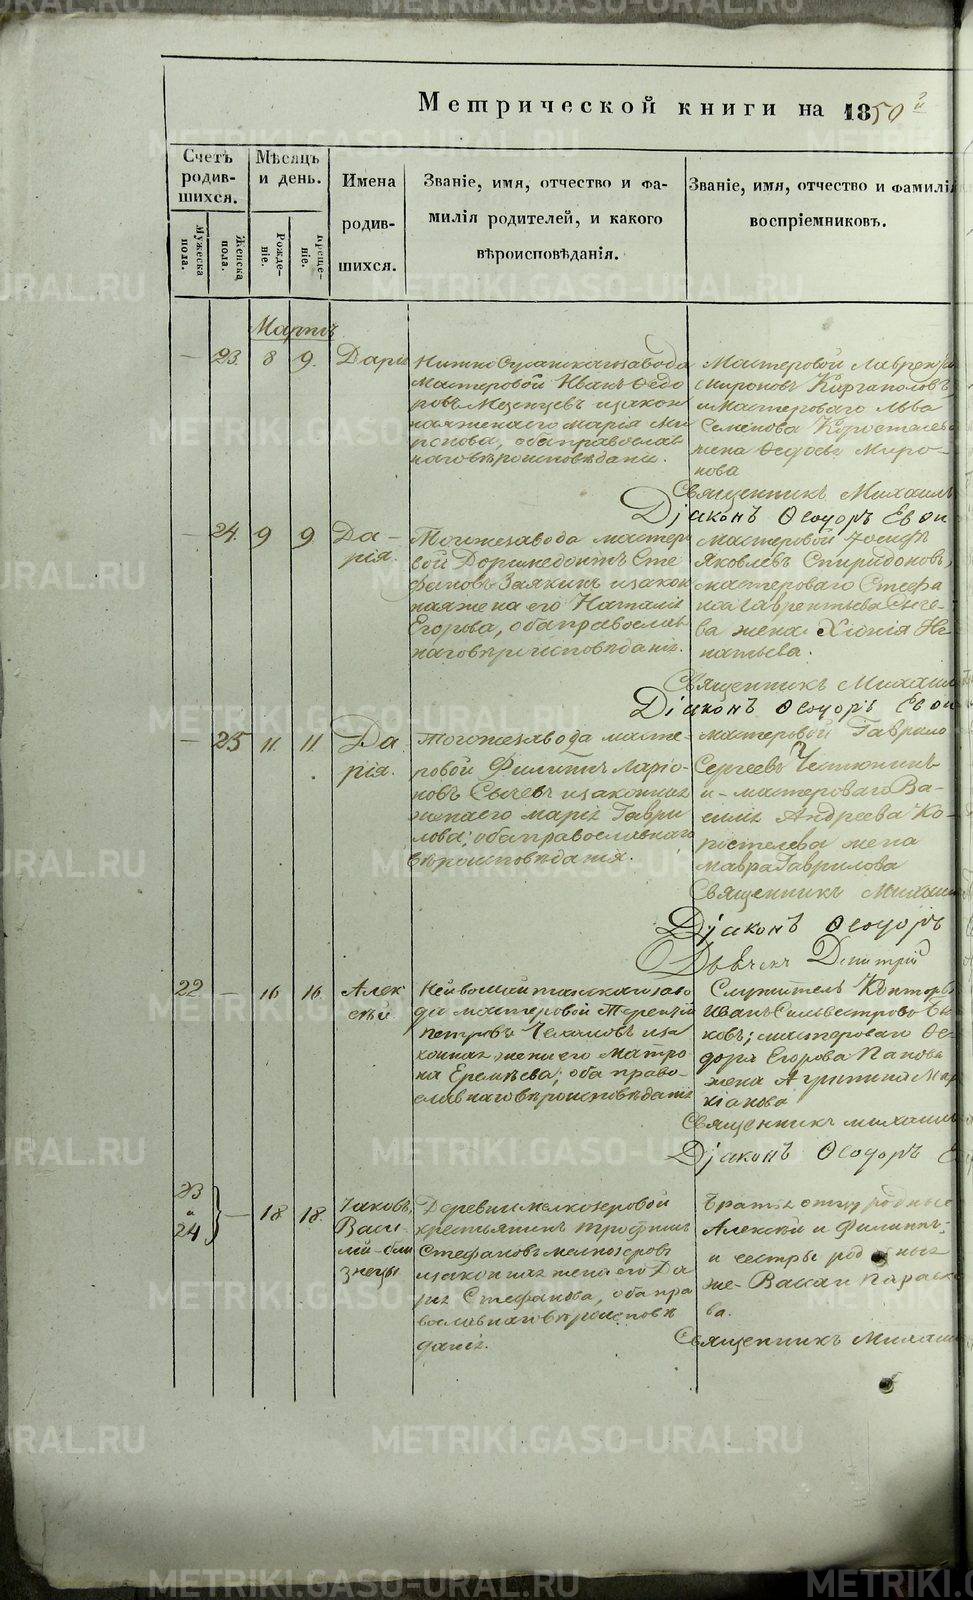 Метрической книги на 1850й
Счетъ родив-шихся.
Мужеска пола.
Женска пола.
Мѣсяцъ и день.
Рожде-ніе.
Креще-ніе.
Имена
родив-
шихся.
Званіе, имя, отчество и фа-
милія родителей, и какого
вѣроисповѣданія.
Званіе, имя, отчество и фамилія
воспріемниковъ.
Мартъ
— 23. 8 9. Дарія
мастеровой Иванъ Ѳедо
ровъ Мезенцевъ изакон
наяжена его Марія
обаправослав
наговѣроисповѣданія.
Мастеровой Лаврентій
Мироновъ Каргаполовъ,
имастероваго Льва
Семенова Коростелева
жена Миро-
нова
Священникъ Михаилъ
Діаконъ Ѳеодоръ
— 24. 9 9 Да-
рія.
Тогожезавода мастеро
вой Доримедонтъ Сте
фановъ Заякинъ изакон
наяжена его Наталія
Егорова, обаправослав
наговѣроисповѣданія.
мастеровой Іосифъ
Яковлевъ Спиридоновъ,
мастероваго Стефа
на Лаврентьева Сыче-
ва жена Хіонія Иг
натьева.
Священникъ Михаилъ
Діаконъ Ѳеодоръ
— 25 11. 11. Да
рія.
Тогожезавода масте-
ровой Филиппъ Ларіо-
новъ Сычевъ изаконная
женаего Марія Гаври
лова; обаправославнаго
вѣроисповѣданія.
мастеровой Гаврило
Сергеевъ
и мастероваго Ва-
силія Андреева Ко-
ростелева жена
Мавра Гаврилова
Священникъ Михаилъ
Діаконъ Ѳеодоръ
Дьячекъ Димитрій
22 — 16 16. Алек
сѣй
да мастеровой Терентій
Петровъ Чекановъ иза
конная жена его Матро
на Еремѣева; оба право-
славнаговѣроисповѣданія
Служитель Конторы
Иванъ Сильвестровъ Бы
ковъ; мастероваго Ѳе
дора Егорова Панова
жена Агрипина Мар
кіанова
Священникъ Михаилъ
Діаконъ Ѳеодоръ
23
и
24 — 18 18. Іаковъ,
Васи
лій-бли
знецы
Деревни Мелкозеровой
крестьянинъ Трофимъ
Стефановъ Мелкозеровъ
изаконная жена его Да
рія Стефанова, оба пра
вославнаговѣроисповѣ
данія.
Братья родные
Алексѣй и Филиппъ;
и сестры родныя
же- Васса и Параске
ва.
Священникъ Михаилъ
METRIKI.GASO-URAL.RU